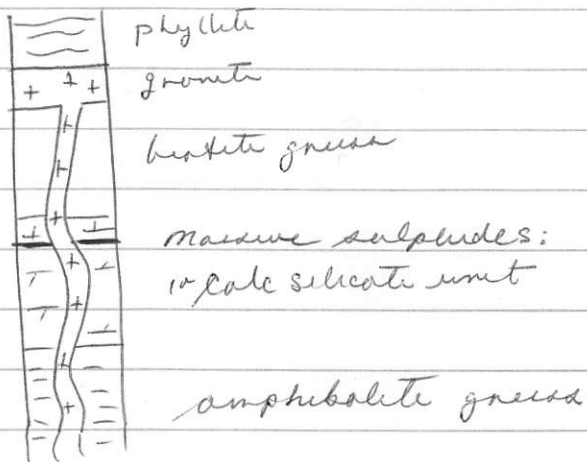 phyllite
granite
biotite gneiss
Massive sulphides:
in Calc Silicate unit
amphibolite gneiss